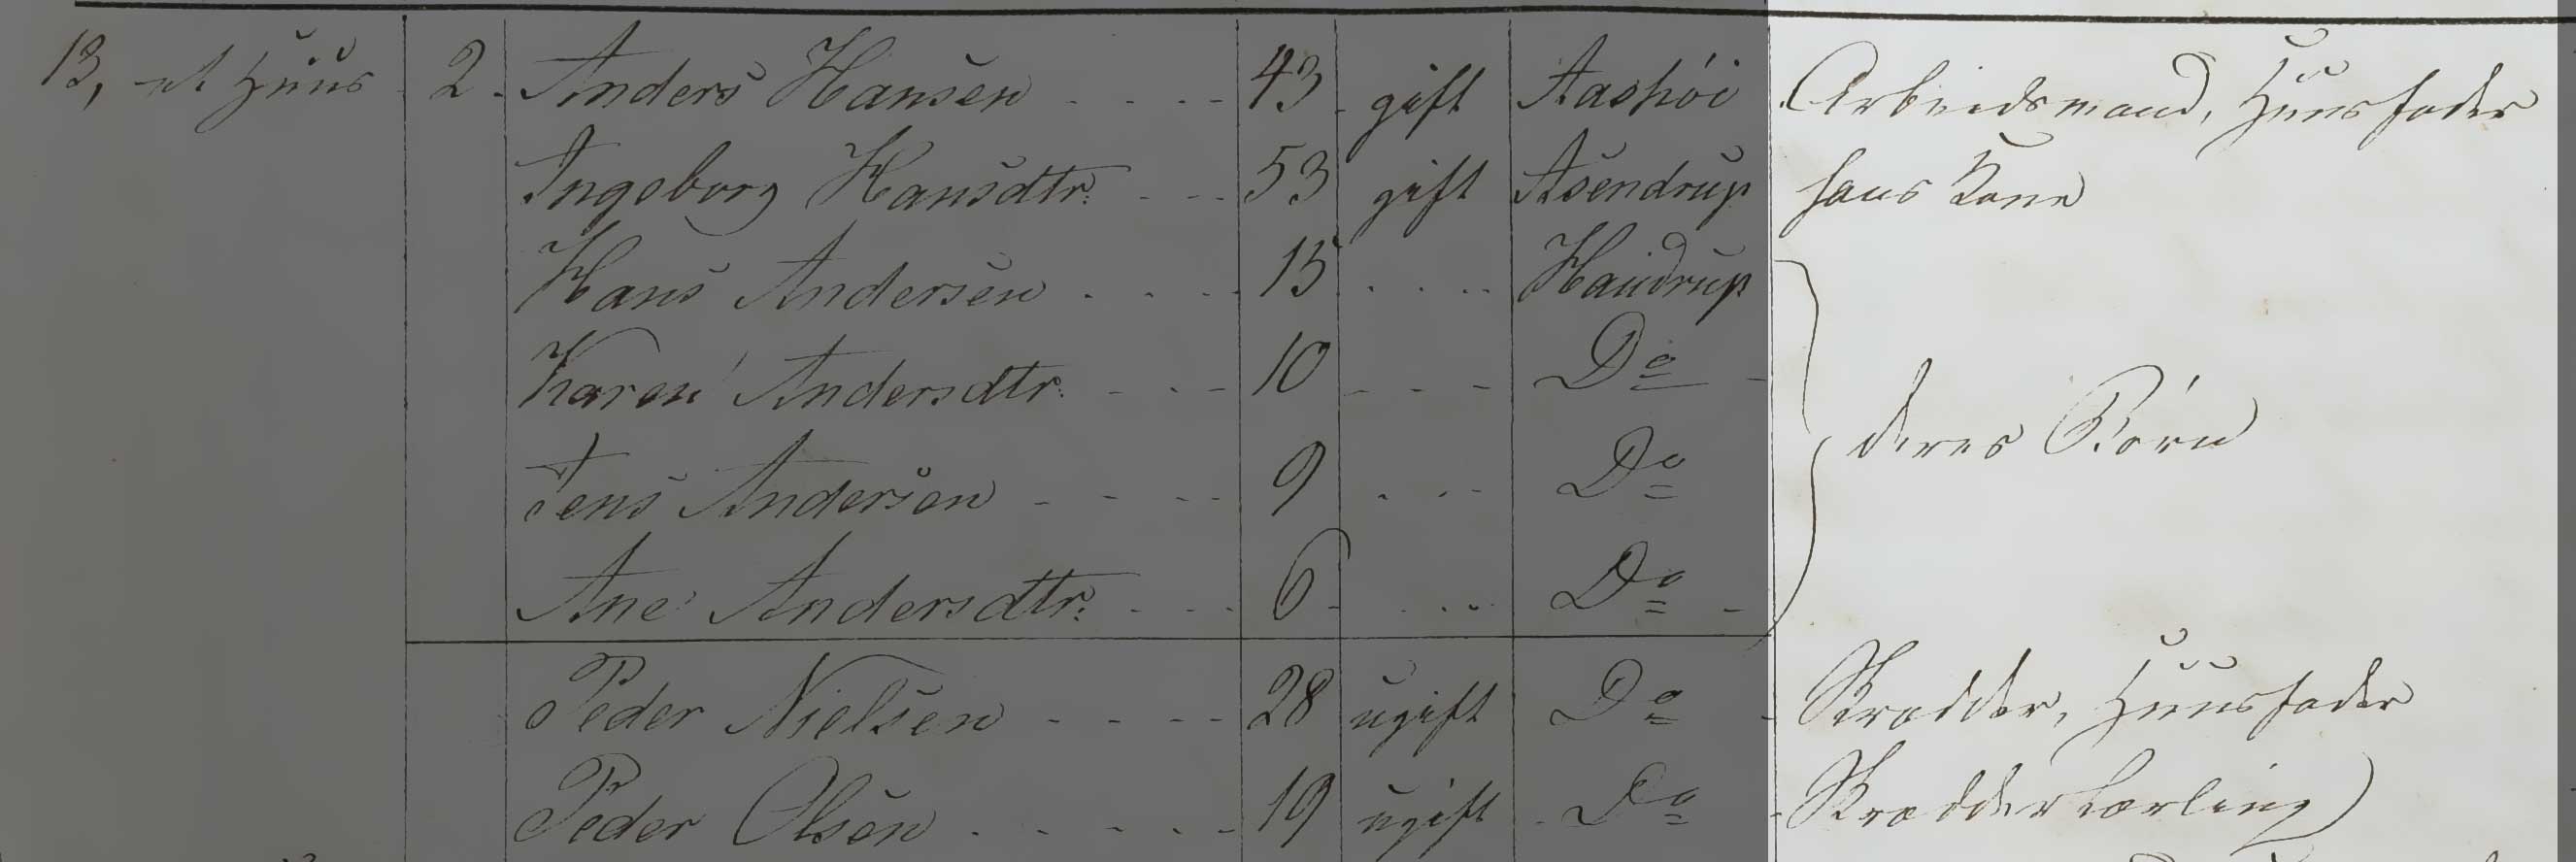 13, et Huus 2. Anders Hansen 43 gift Aashöi Arbeidsmand, Huusfader
Ingeborg Hansdtr: 53 gift Asendrup hans Kone
Hans Andersen 15 Haudrup
Karen Andersdtr: 10 Do
deres Börn
Jens Andersen 9 Do
Ane Andersdtr: 6 Do
Peder Nielsen 28 ugift Do Skrædder, Huusfader
Peder Olsen 19 ugift Do Skrædderlærling